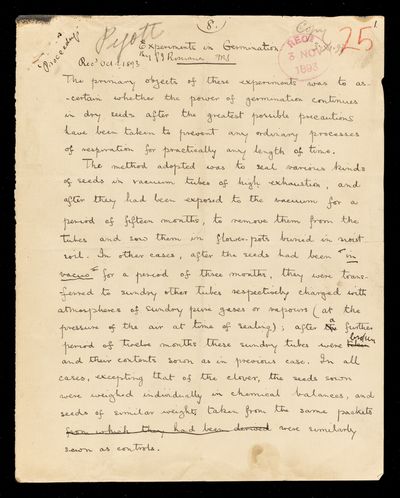 "Proceedings"
Pyott
(8.)
Copy
1.
25
Experiments in Germination.
By G J Romanes MS
Recd Oct 1893
RECD
3 NOV
1893
The primary objects of these experiments was to as-
-certain whether the power of germination continues
in dry seeds after the greatest possible precautions
have been taken to prevent any ordinary processes
of respiration for practically any length of time.
The method adopted was to seal various kinds
of seeds in vacuum tubes of high exhaustion, and
after they had been exposed to the vacuum for a
period of fifteen months, to remove them from the
tubes and sow them in flower-pots buried in moist
soil. In other cases, after the seeds had been "in
vacuo" for a period of three months, they were trans-
-ferred to sundry other tubes respectively charged with
atmospheres of sundry pure gases or vapours (at the
pressure of the air at time of sealing); after a further
period of twelve months these sundry tubes were broken
and their contents sown as in previous case. In all
cases, excepting that of the clover, the seeds sown
were weighed individually in chemical balances, and
seeds of similar weights taken from the same packets
from which they had been derived were similarly
sown as controls.